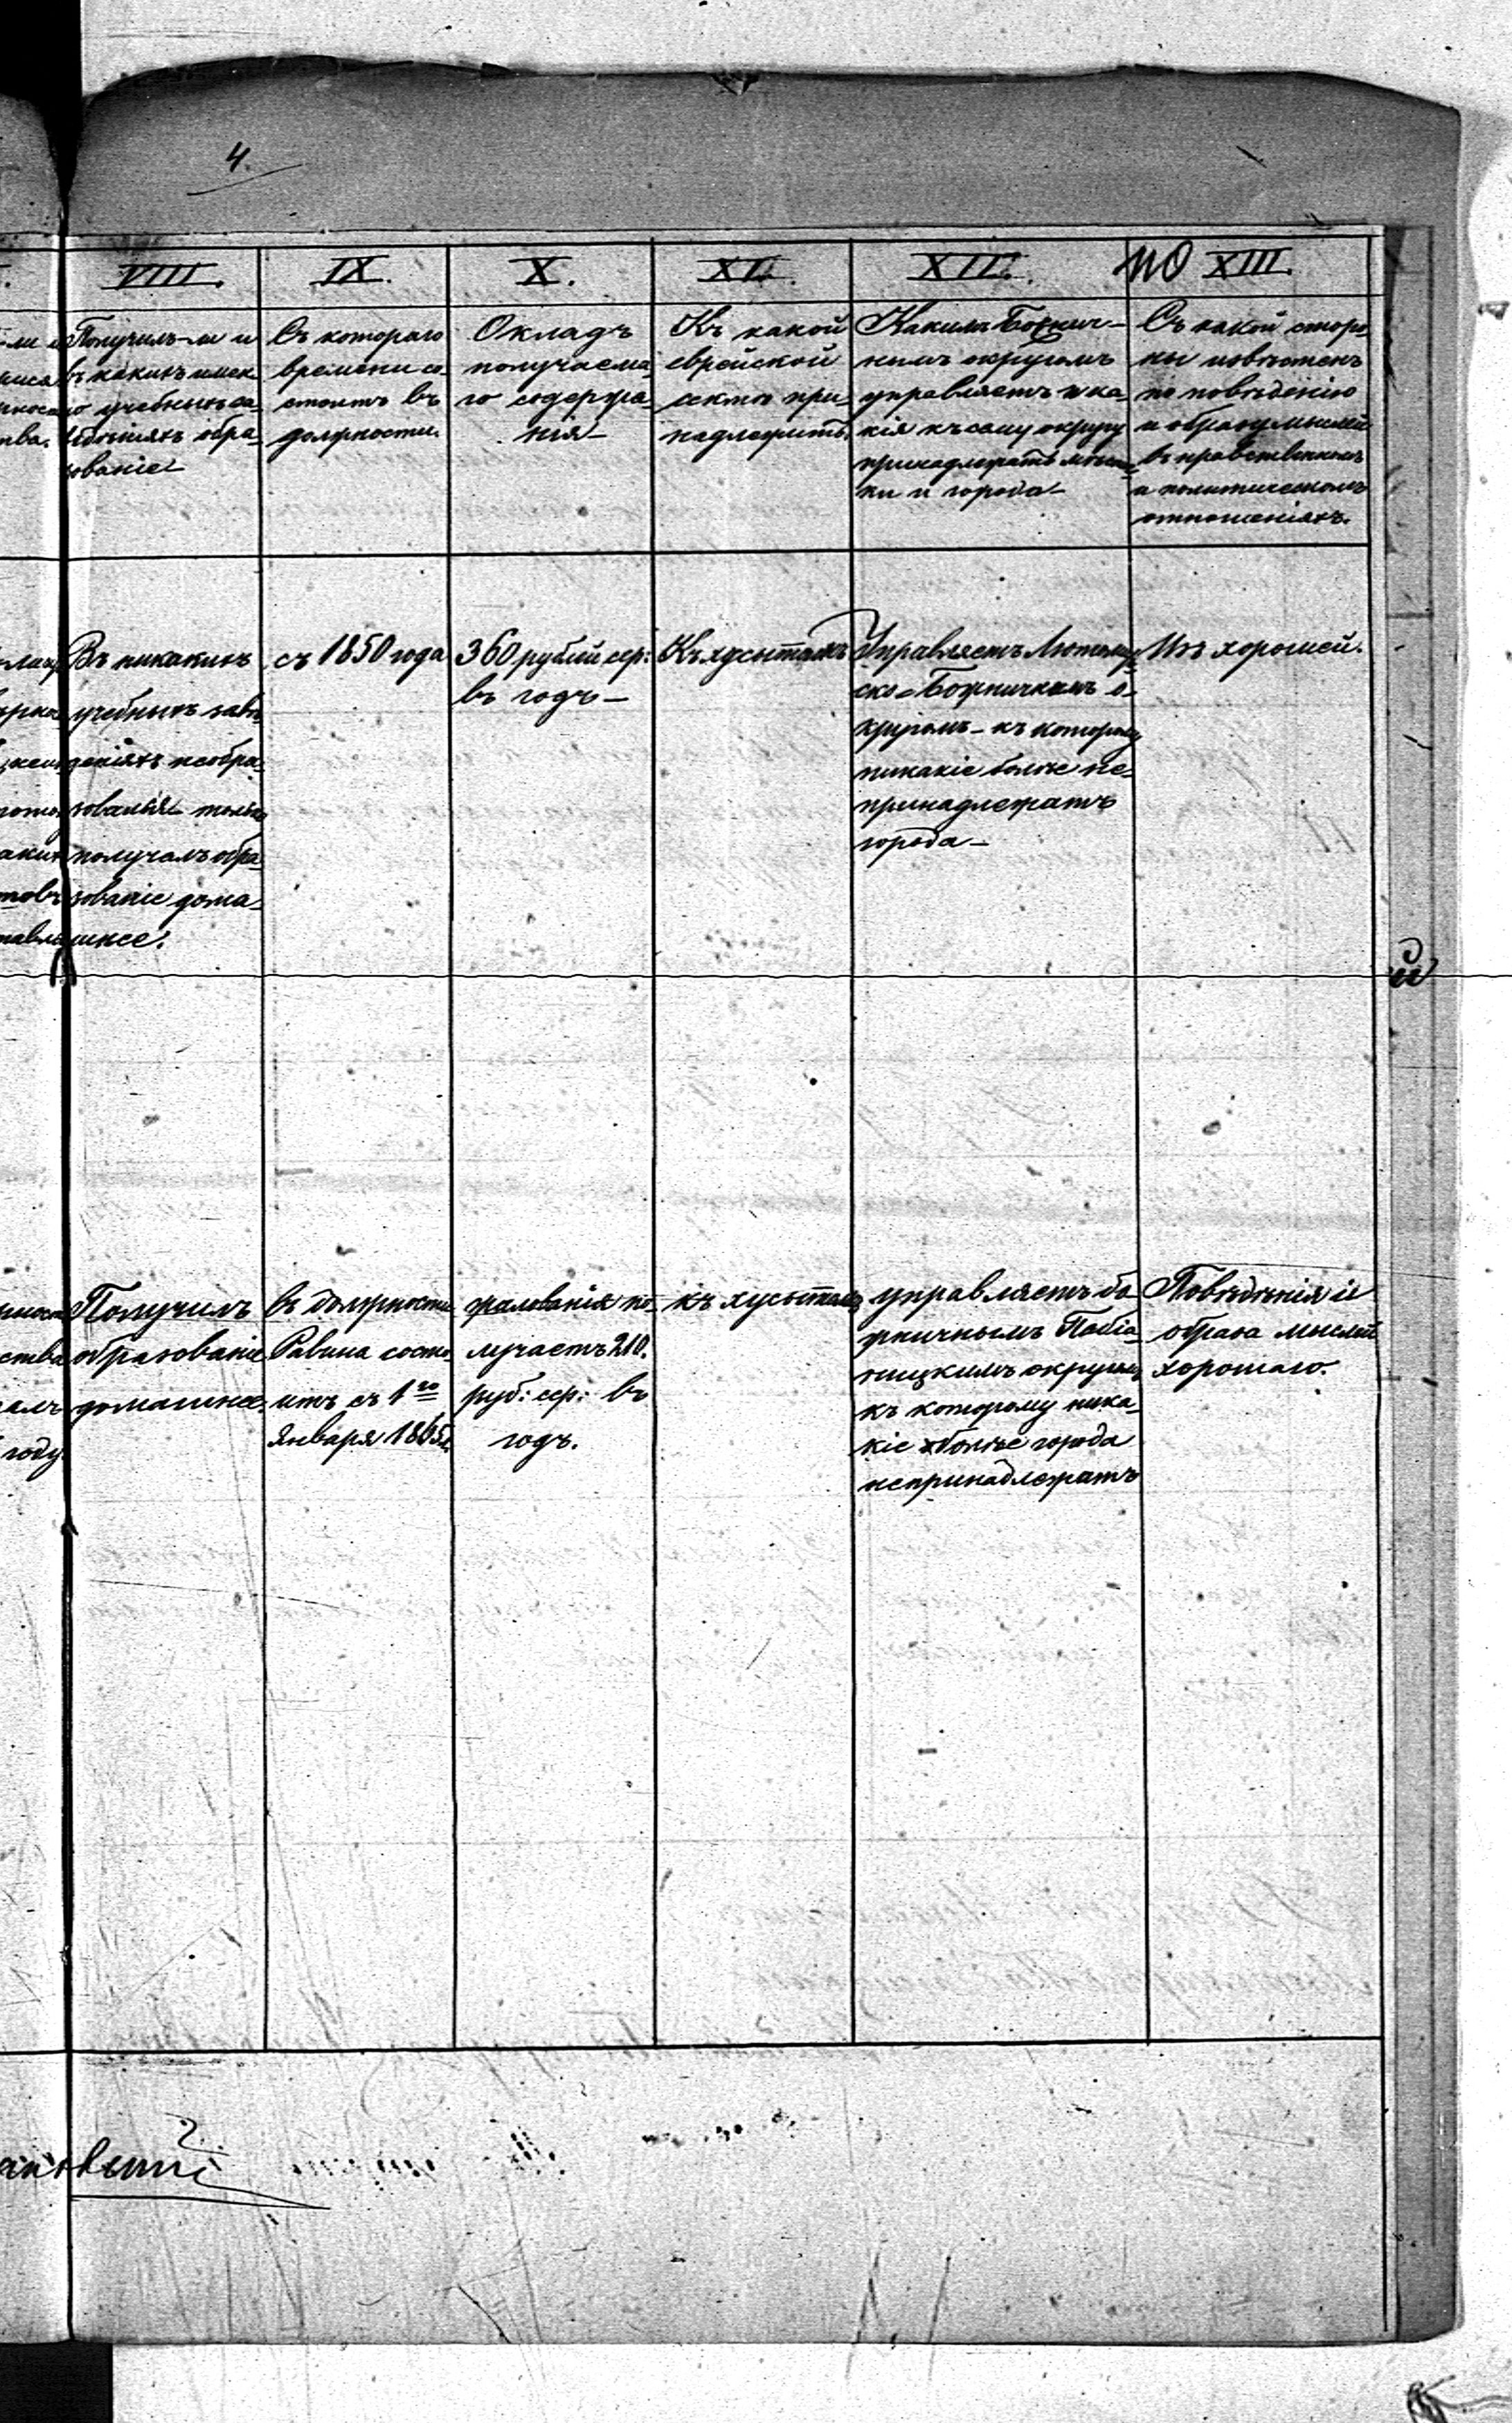 4.
VIII.
IX.
X.
XI.
XII.
по XIII.
Получилъ-ли и
въ какихъ имен-
но учебныхъ за-
веденіяхъ обра-
зованіе
Съ котораго
времени со-
стоитъ въ
должности.
Окладъ
получаема-
го содержа-
нія-
Къ какой
еврейской
сектѣ при-
надлежитъ.
Какимъ Божнич-
нымъ округомъ
управляетъ и ка-
кія къ сему округу
принадлежатъ
ки и города-
Съ какой сторо-
ны извѣстенъ
по поведенію
и образу мыслей
въ нравственномъ
и политическомъ
отношеніяхъ.
Въ никакихъ
учебныхъ заве-
деніяхъ необра-
зовался только
получалъ обра-
зованіе дома-
шнее.
съ 1850 года
360 рублей сер:
въ годъ-
Къ хусытамъ
Управляетъ
ско-Божничнымъ о-
кругомъ - къ которому
никакіе болѣе не-
принадлежатъ
города-
Изъ хорошей.
Получилъ
образованіе
домашнее.
въ должности
Равина состо-
итъ съ 1го
Января 1865г.
жалованія по-
лучаетъ 210.
руб: сер: въ
годъ.
къ хусытамъ
управляетъ бо-
жничнымъ Пабіа-
ницкимъ округомъ
къ которому ника-
кіе болѣе города
непринадлежатъ
Поведенія и
образа мыслей
хорошаго.